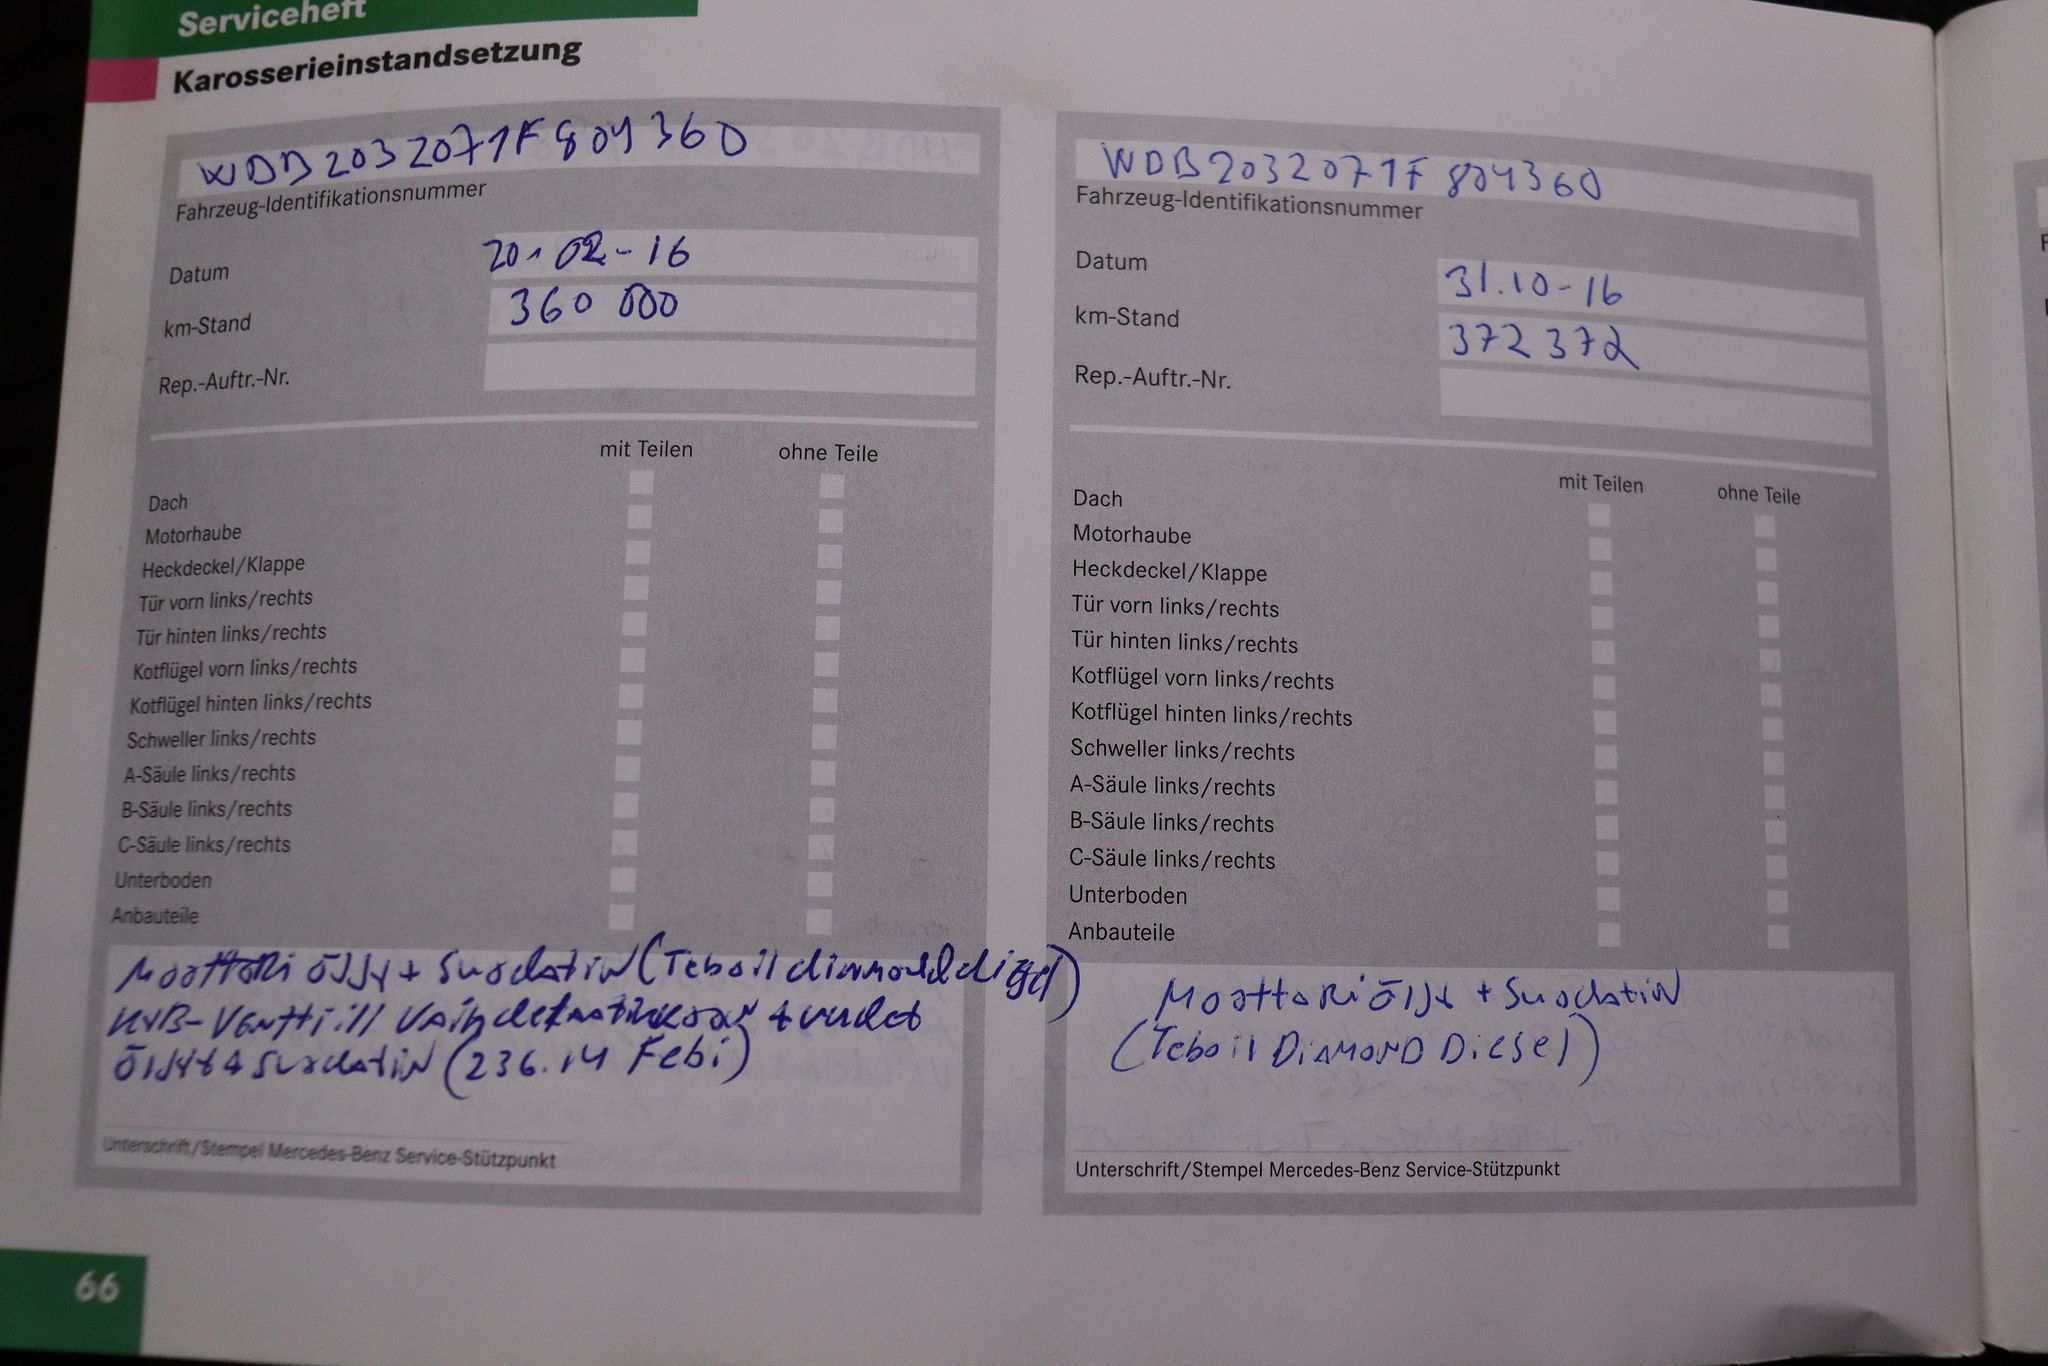 Serviceheft
Karosserieinstandsetzung
WDB2032071F804360
Fahrzeug-Identifikationsnummer
Datum 20.02-16
km-Stand 360 000
Rep.-Auftr.-Nr.
mit Teilen ohne Teile
Dach
Motorhaube
Heckdeckel/Klappe
Tür vorn links/rechts
Tür hinten links/rechts
Kotflügel vorn links/rechts
Kotflügel hinten links/rechts
Schweller links/rechts
A-Säule links/rechts
B-Säule links/rechts
C-Säule links/rechts
Unterboden
Anbauteile
Moottori öljy + Suodatin (Teboil diamond diesel)
Venttiili Vaihdelaatikkoon + uudet
öljyt + suodatin (236.14 Febi)
Unterschrift/Stempel Mercedes-Benz Service-Stützpunkt
WDB2032071F804360
Fahrzeug-Identifikationsnummer
Datum 31.10-16
km-Stand 372 372
Rep.-Auftr.-Nr.
mit Teilen ohne Teile
Dach
Motorhaube
Heckdeckel/Klappe
Tür vorn links/rechts
Tür hinten links/rechts
Kotflügel vorn links/rechts
Kotflügel hinten links/rechts
Schweller links/rechts
A-Säule links/rechts
B-Säule links/rechts
C-Säule links/rechts
Unterboden
Anbauteile
Moottori öljy + Suodatin
(Teboil DIAMOND Diesel)
Unterschrift/Stempel Mercedes-Benz Service-Stützpunkt
66